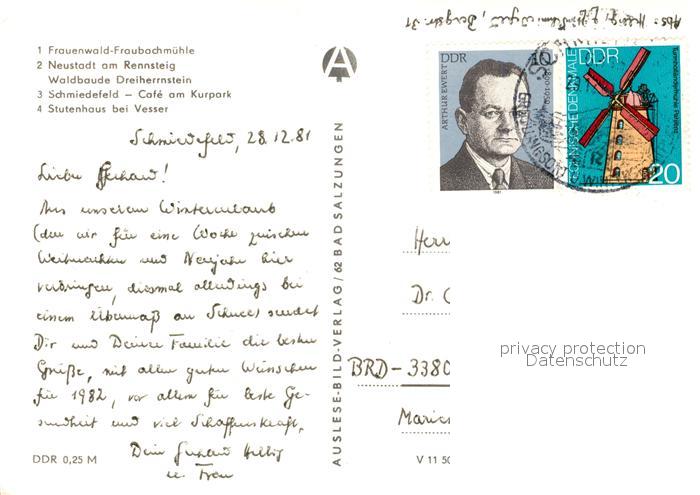 1 Frauenwald-Fraubachmühle
2 Neustadt am Rennsteig
Waldbaude Dreiherrnstein
3 Schmiedefeld – Café am Kurpark
4 Stutenhaus bei Vesser
Schmiedefeld, 28.12.81
Liebe Gerhard!
Aus unserem Winterurlaub
(den wir für eine Woche zwischen
Weihnachten und Neujahr hier
verbringen, diesmal allerdings bei
einem Übermaß an Schnee) sendet
Dir und Deiner Familie die besten
Grüße, mit allen guten Wünschen
für 1982, vor allem für beste Ge-
sundheit und viel Schaffenskraft,
Dein Gerhard Hellig
u. Frau
DDR 0,25 M
AUSLESE-BILD-VERLAG / 62 BAD SALZUNGEN
V 11 50
A
Abs.: Hellig, Bergstr. 31
DDR
10
ARTHUR EWERT
1890-1959
1981
DDR
TECHNISCHE DENKMALE
20
Herr
Dr.
BRD-3380
privacy protection
Datenschutz